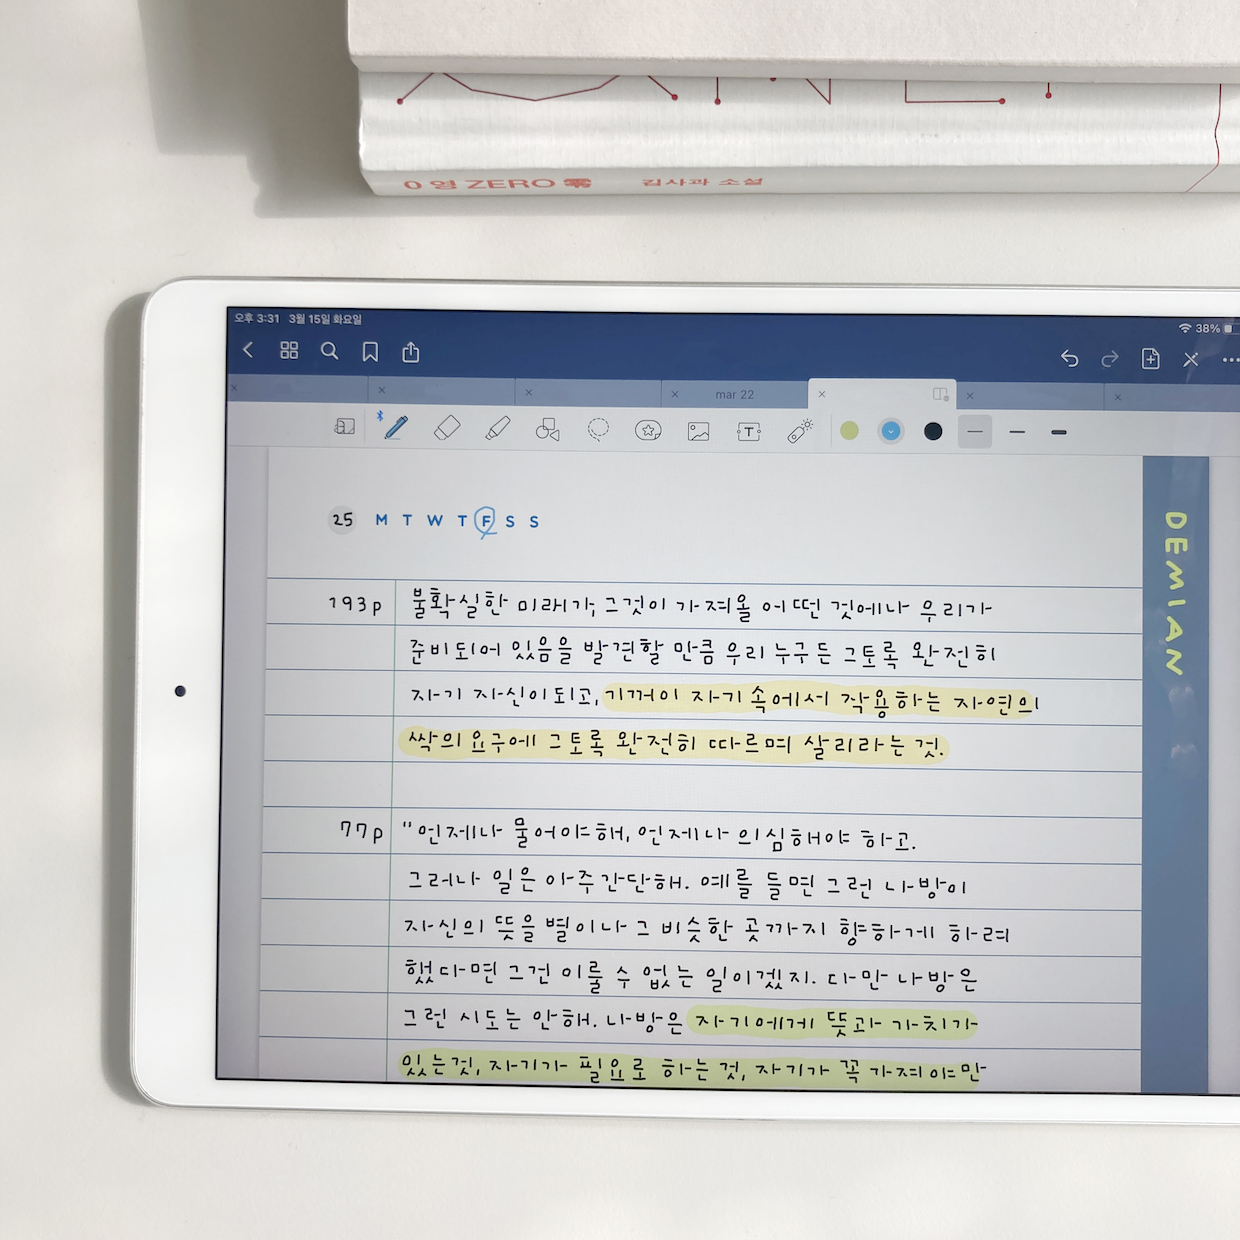 0 영 ZERO 零 김사과 소설
오후 3:31 3월 15일 화요일
38%
mar 22
25 M T W T F S S
DEMIAN
193p 불확실한 미래가, 그것이 가져올 어떤 것에나 우리가
준비되어 있음을 발견할 만큼 우리 누구든 그토록 완전히
자기 자신이 되고, 기꺼이 자기 속에서 작용하는 자연의
싹의 요구에 그토록 완전히 따르며 살리라는 것.
77p "언제나 물어야해, 언제나 의심해야 하고.
그러나 일은 아주 간단해. 예를 들면 그런 나방이
자신의 뜻을 별이나 그 비슷한 곳까지 향하게 하려
했다면 그건 이룰 수 없는 일이겠지. 다만 나방은
그런 시도는 안해. 나방은 자기에게 뜻과 가치가
있는것, 자기가 필요로 하는 것, 자기가 꼭 가져야만